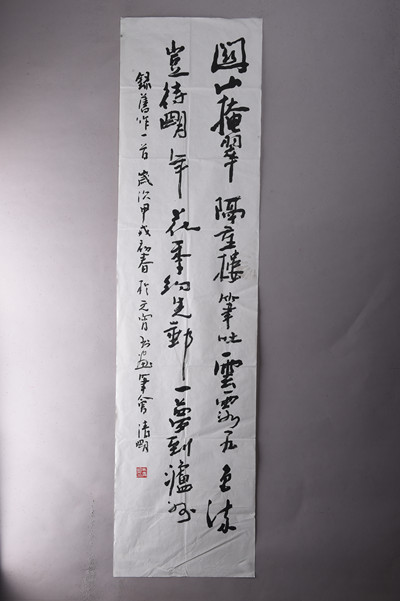 關山掩翠隔重樓筆吐雲五色流
豈待明年花季約先郵一夢到瀘州
錄舊作一首歲次甲戌初春於元宵書畫筆會明